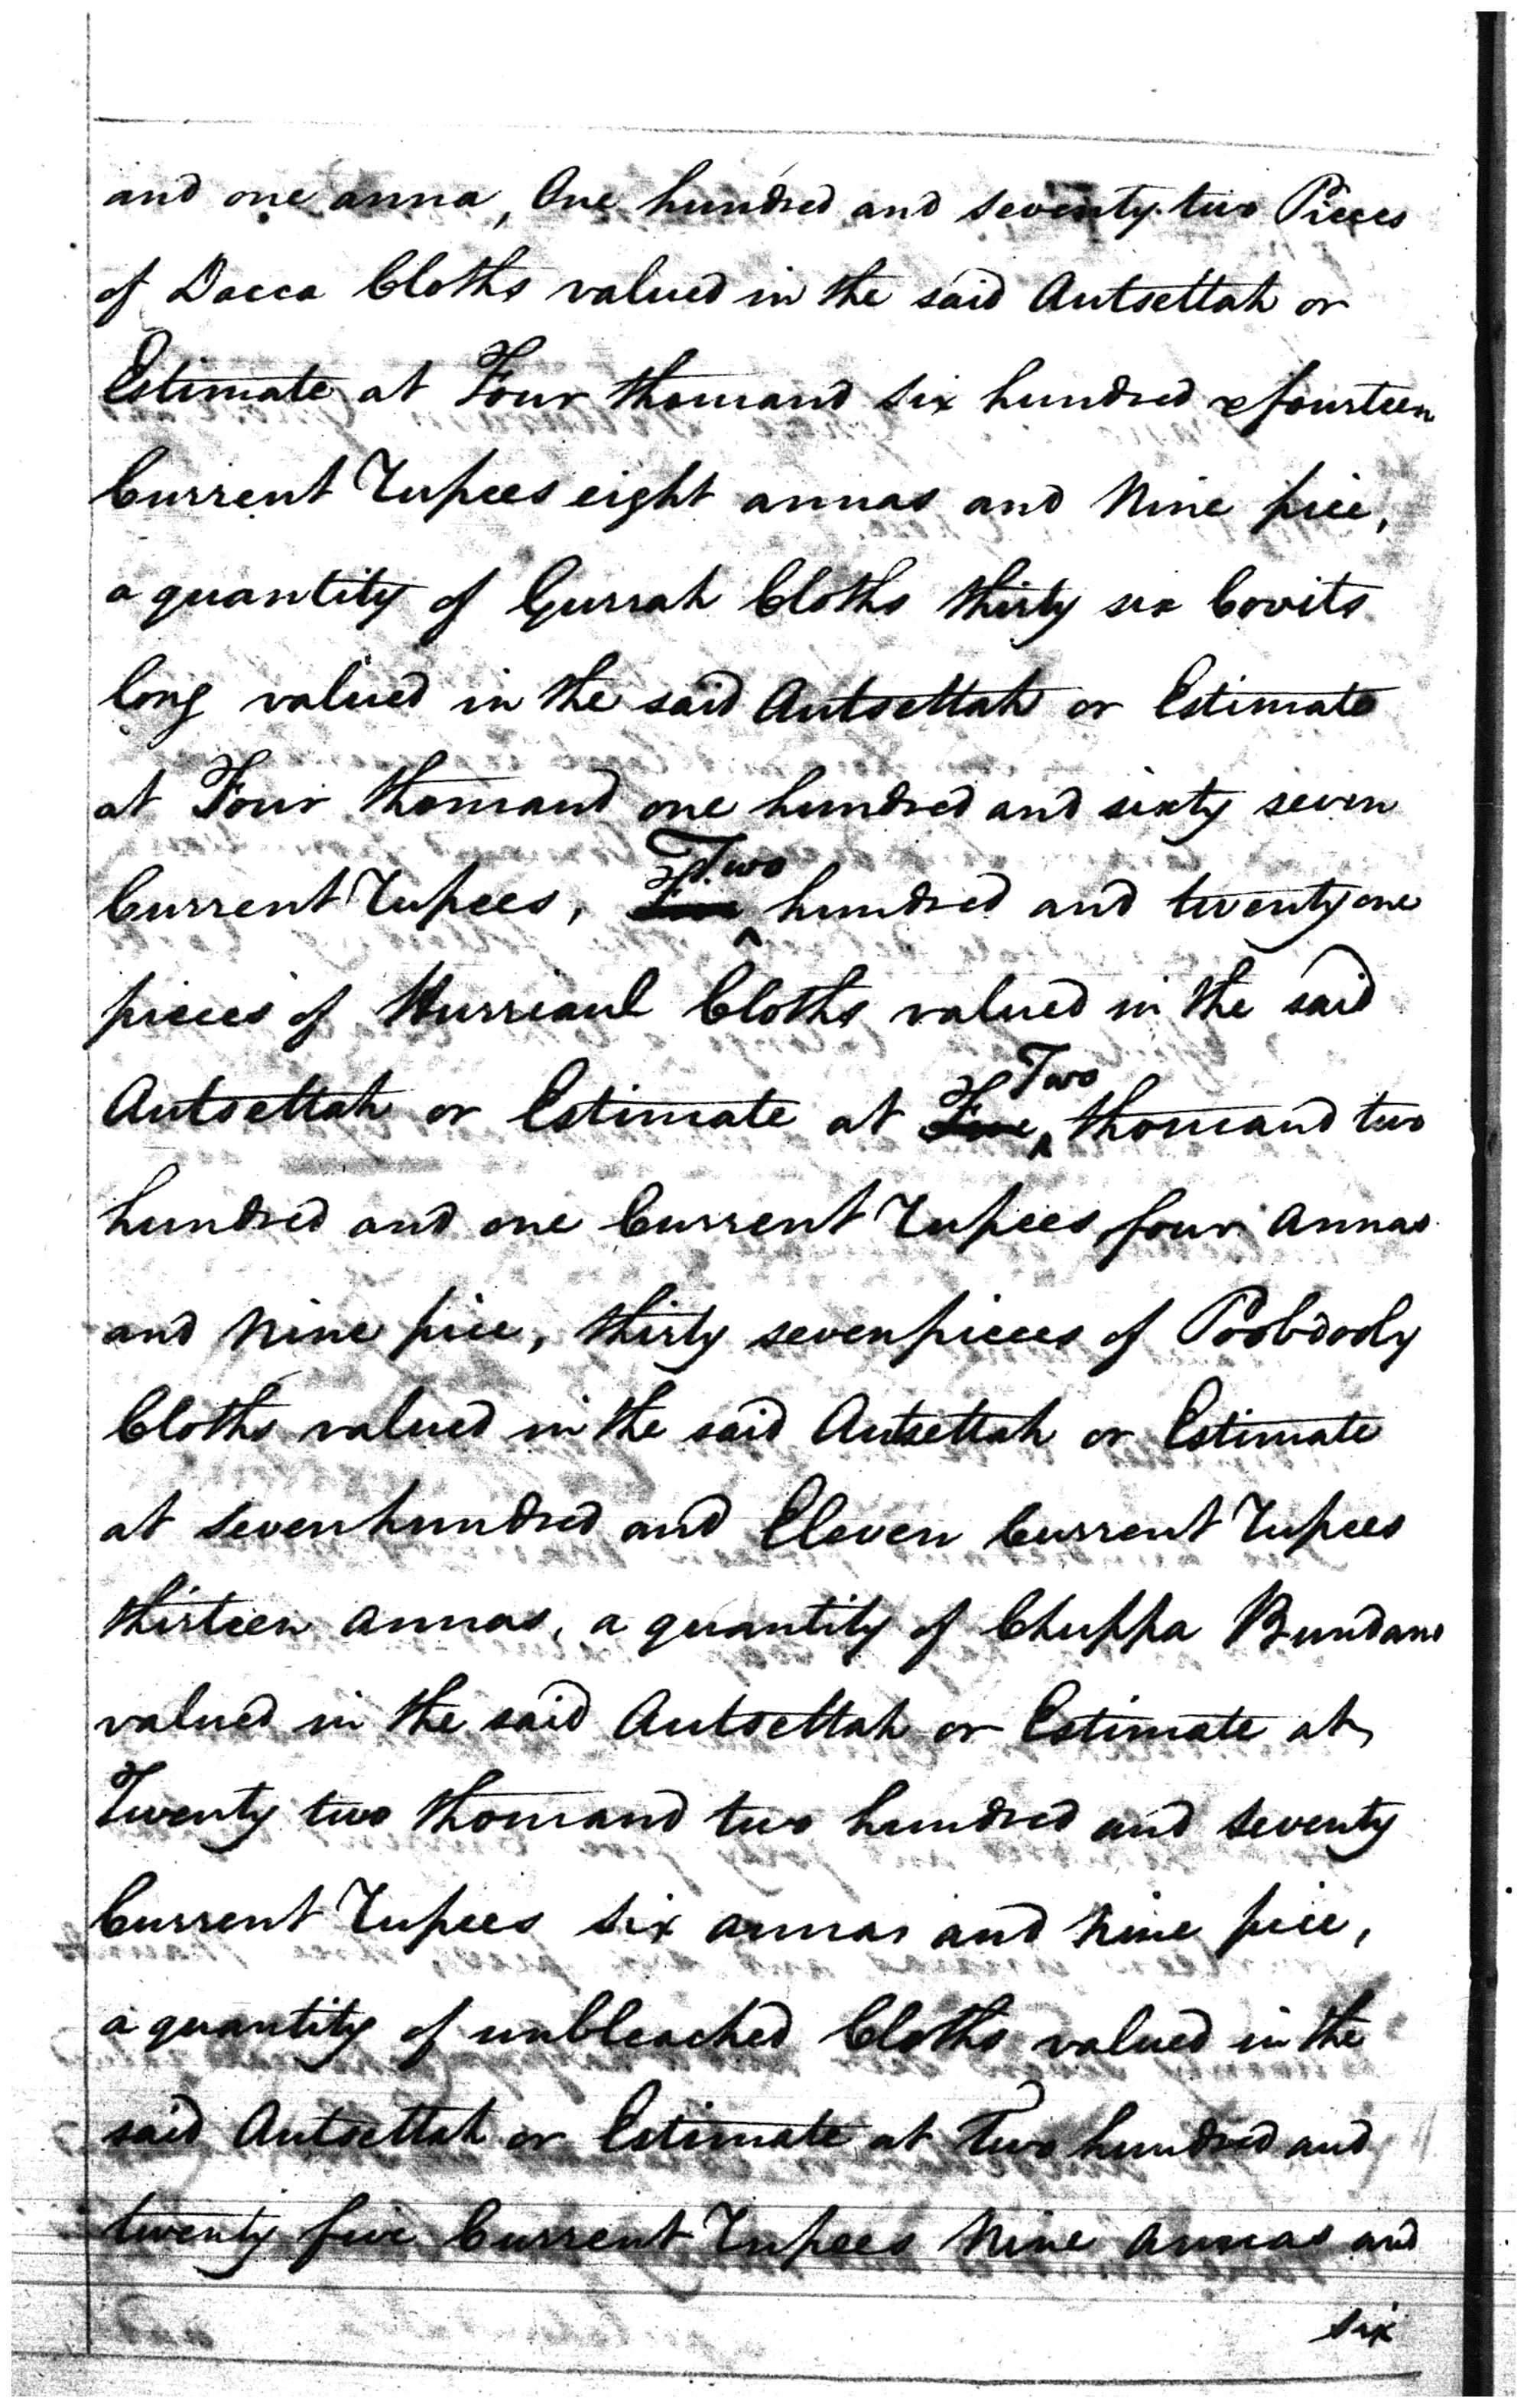 and one anna, One hundred and seventy two Pieces
of Dacca Cloths valued in the said Autsettah or
Estimate at Four thousand six hundred & fourteen
Current Rupees eight annas and Nine pice,
a quantity of Gurrah Cloths thirty six Covits
long valued in the said Autsettah or Estimate
at Four thousand one hundred and sixty seven
Current Rupees, Two hundred and twenty one
pieces of Hurriaul Cloths valued in the said
Autsettah or Estimate at Two thousand two
hundred and one Current Rupees four Annas
and Nine pice, thirty seven pieces of Poobdooly
Cloths valued in the said Autsettah or Estimate
at seven hundred and Eleven Current Rupees
thirteen annas, a quantity of Chuppa Bundans
valued in the said Autsettah or Estimate at
Twenty two thousand two hundred and seventy
Current Rupees six annas and nine pice,
a quantity of unbleached Cloths valued in the
said Autsettah or Estimate at Two hundred and
twenty five Current Rupees Nine annas and
six